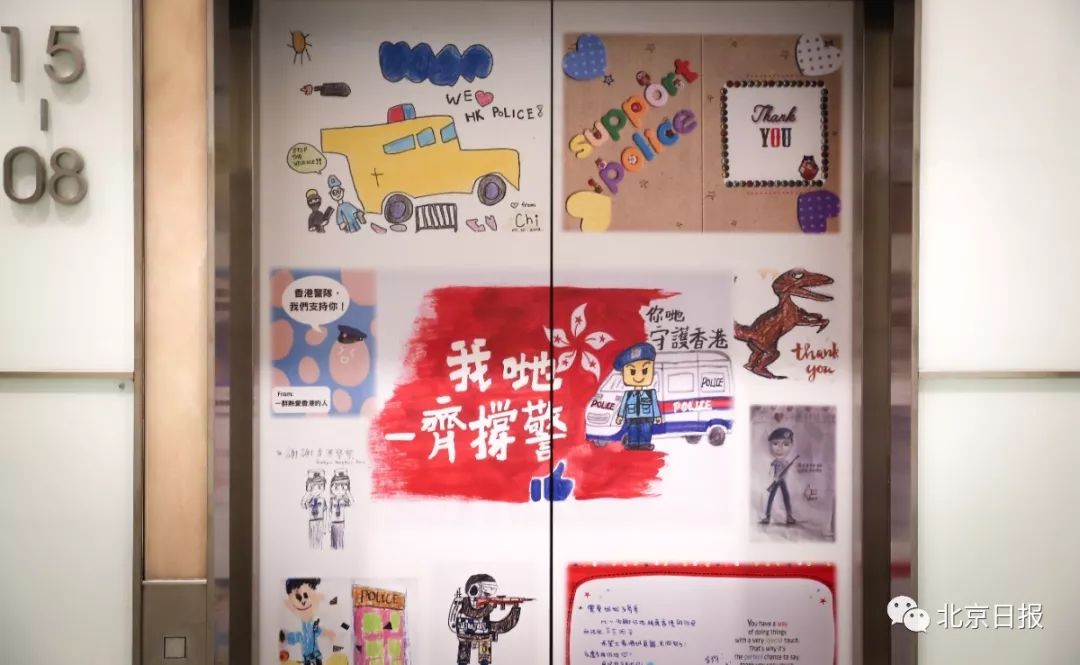 15
08
WE
HK POLICE!
STOP
THE
VIOLENCE!!
from
Chi
support
police
Thank
YOU
香港警隊，
我們支持你！
From:
一群熱愛香港的人
我哋
一齊撐警
你哋
守護香港
POLICE
POLICE
POLICE
thank
you
謝謝香港警察
POLICE
You have a way
of doing things
with a very special touch.
That's why it's
the perfect chance to say,
北京日报